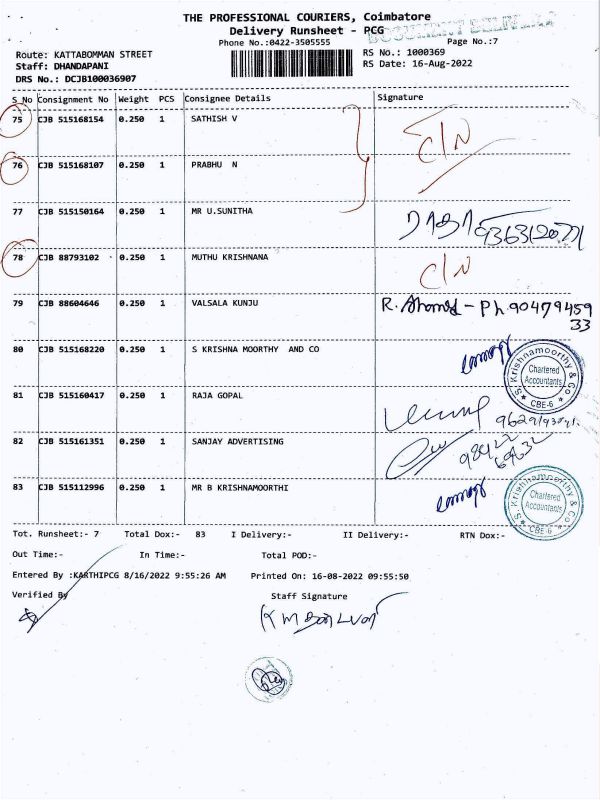 THE PROFESSIONAL COURIERS, Coimbatore
Delivery Runsheet - PCG
DOCUMENT DELIVERY
Phone No.:0422-3505555 Page No.:7
Route: KATTABOMMAN STREET RS No.: 1000369
Staff: DHANDAPANI RS Date: 16-Aug-2022
DRS No.: DCJB100036907
S_No Consignment No Weight PCS Consignee Details Signature
75 CJB 515168154 0.250 1 SATHISH V
C/N
76 CJB 515168107 0.250 1 PRABHU N
77 CJB 515150164 0.250 1 MR U.SUNITHA
78 CJB 88793102 0.250 1 MUTHU KRISHNANA C/N
79 CJB 88604646 0.250 1 VALSALA KUNJU R. Ahomed - Ph.90479459
33
80 CJB 515168220 0.250 1 S KRISHNA MOORTHY AND CO
S. Krishnamoorthy & Co
Chartered
Accountants
CBE-6
81 CJB 515160417 0.250 1 RAJA GOPAL
82 CJB 515161351 0.250 1 SANJAY ADVERTISING
83 CJB 515112996 0.250 1 MR B KRISHNAMOORTHI
S. Krishnamoorthy & Co
Chartered
Accountants
CBE-6
Tot. Runsheet:- 7 Total Dox:- 83 I Delivery:- II Delivery:- RTN Dox:-
Out Time:- In Time:- Total POD:-
Entered By :KARTHIPCG 8/16/2022 9:55:26 AM Printed On: 16-08-2022 09:55:50
Verified By Staff Signature